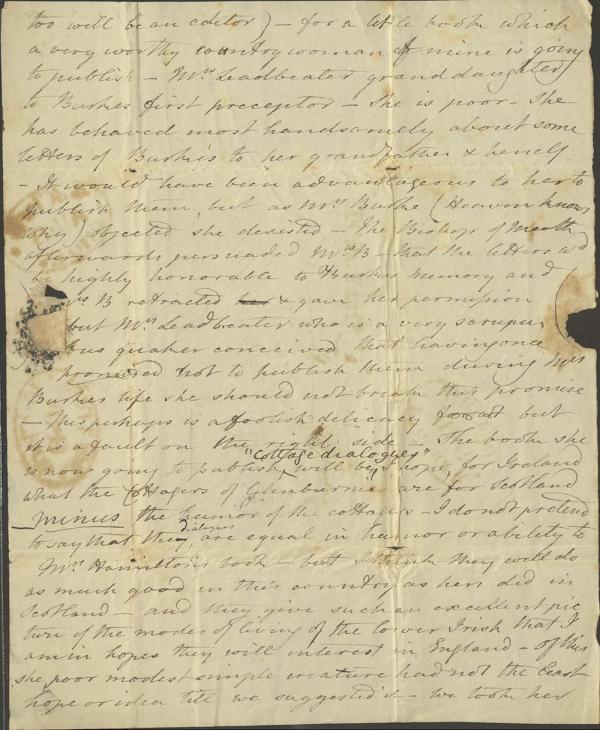 too will be an editor) – for a little book which
a very worthy countrywoman of mine is going
to publish – Mrs Leadbeater granddaughter
to Burkes first preceptor – She is poor – She
has behaved most handsomely about some
letters of Burke's to her grandfather & herself
– It would have been advantageous to her to
publish them but as Mrs Burke (Heaven knows
why) objected she desisted – The Bishop of Meath
afterwards persuaded Mrs B – that the letters wd
be highly honorable to Burkes memory and
Mrs B retracted her & gave her permission
but Mrs Leadbeater who is a very scrupu
lous quaker conceived that having once
promised not to publish them during Mrs
Burkes life she should not break this promise
– This perhaps is a foolish delicacy but
it is a fault on the right side – The book she
"Cottage dialogues"
is now going to publish will be I hope, for Ireland
what the Cottagers of Glenburnie are for Scotland
minus the humor of the cottagers – I do not pretend
dialogues
to say that they are equal in humor or ability to
Mrs Hamilton's book – but I think they will do
as much good in this country as hers did in
Scotland – and they give such an excellent pic
ture of the modes of living of the lower Irish that I
am in hopes they will interest in England – of this
she, poor modest simple creature had not the least
hope or idea till we suggested it – We took her